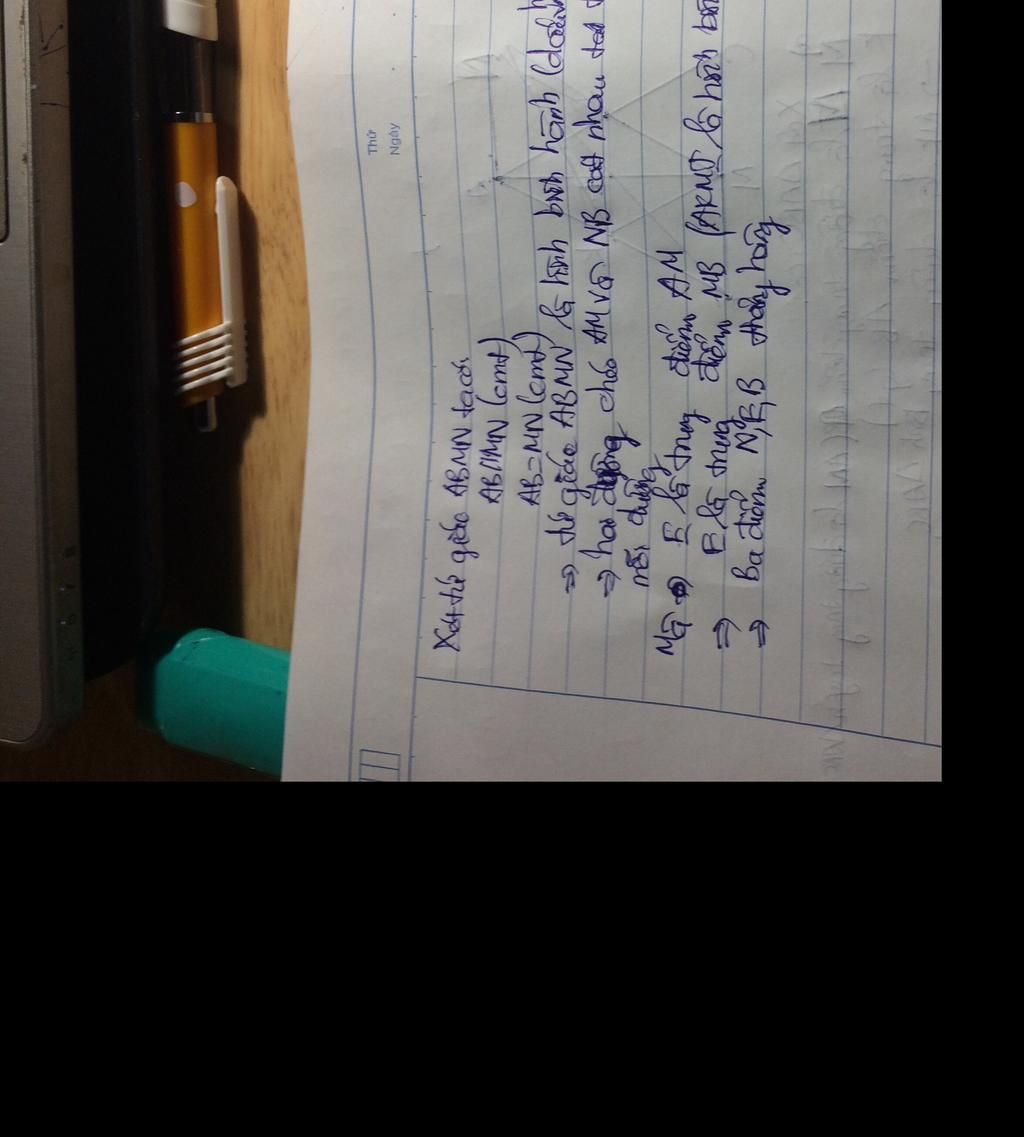 Thứ
Ngày
Xét tứ giác ABMN ta có:
AB//MN (cmt)
AB=MN (cmt)
⇒ tứ giác ABMN là hình bình hành (dấu
⇒ hai đường chéo AM và NB cắt nhau tại
mỗi đường
Mà E là trung điểm AM
⇒ E là trung điểm NB (AKMI là hình bìn
⇒ Ba điểm N,E,B thẳng hàng